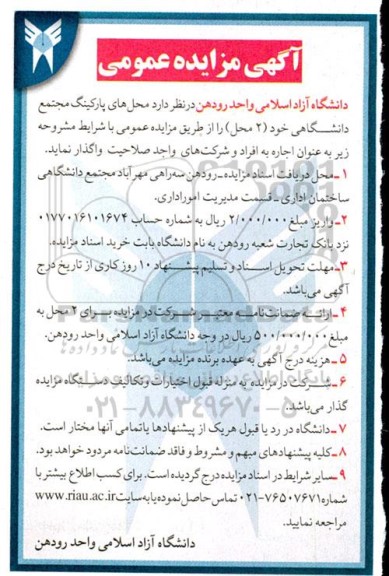 آگهی مزایده عمومی
دانشگاه آزاد اسلامی واحد رودهن درنظر دارد محل‌های پارکینگ مجتمع
دانشگاهی خود (۲ محل) را از طریق مزایده عمومی با شرایط مشروحه
زیر به عنوان اجاره به افراد و شرکت‌های واجد صلاحیت واگذار نماید.
۱ـ محل دریافت اسناد مزایده ـ رودهن سه‌راهی مهرآباد مجتمع دانشگاهی
ساختمان اداری ـ قسمت مدیریت امور اداری.
۲ـ واریز مبلغ ۲/۰۰۰/۰۰۰ ریال به شماره حساب ۰۱۷۷۰۱۶۱۰۱۶۷۴
نزد بانک تجارت شعبه رودهن به نام دانشگاه بابت خرید اسناد مزایده.
۳ـ مهلت تحویل اسناد و تسلیم پیشنهاد ۱۰ روز کاری از تاریخ درج
آگهی می‌باشد.
۴ـ ارائه ضمانت‌نامه معتبر شرکت در مزایده برای ۲ محل به
مبلغ ۵۰۰/۰۰۰/۰۰۰ ریال در وجه دانشگاه آزاد اسلامی واحد رودهن.
۵ـ هزینه درج آگهی به عهده برنده مزایده می‌باشد.
۶ـ شرکت در مزایده به منزله قبول اختیارات و تکالیف دستگاه مزایده
گذار می‌باشد.
۰۲۱-۸۸۳۴۹۶۷۰-۵
۷ـ دانشگاه در رد یا قبول هریک از پیشنهادها یا تمامی آنها مختار است.
۸ـ کلیه پیشنهادهای مبهم و مشروط و فاقد ضمانت‌نامه مردود خواهد بود.
۹ـ سایر شرایط در اسناد مزایده درج گردیده است. برای کسب اطلاع بیشتر با
شماره ۷۶۵۰۷۶۷۱-۰۲۱ تماس حاصل نموده یا به سایت www.riau.ac.ir
مراجعه نمایید.
دانشگاه آزاد اسلامی واحد رودهن